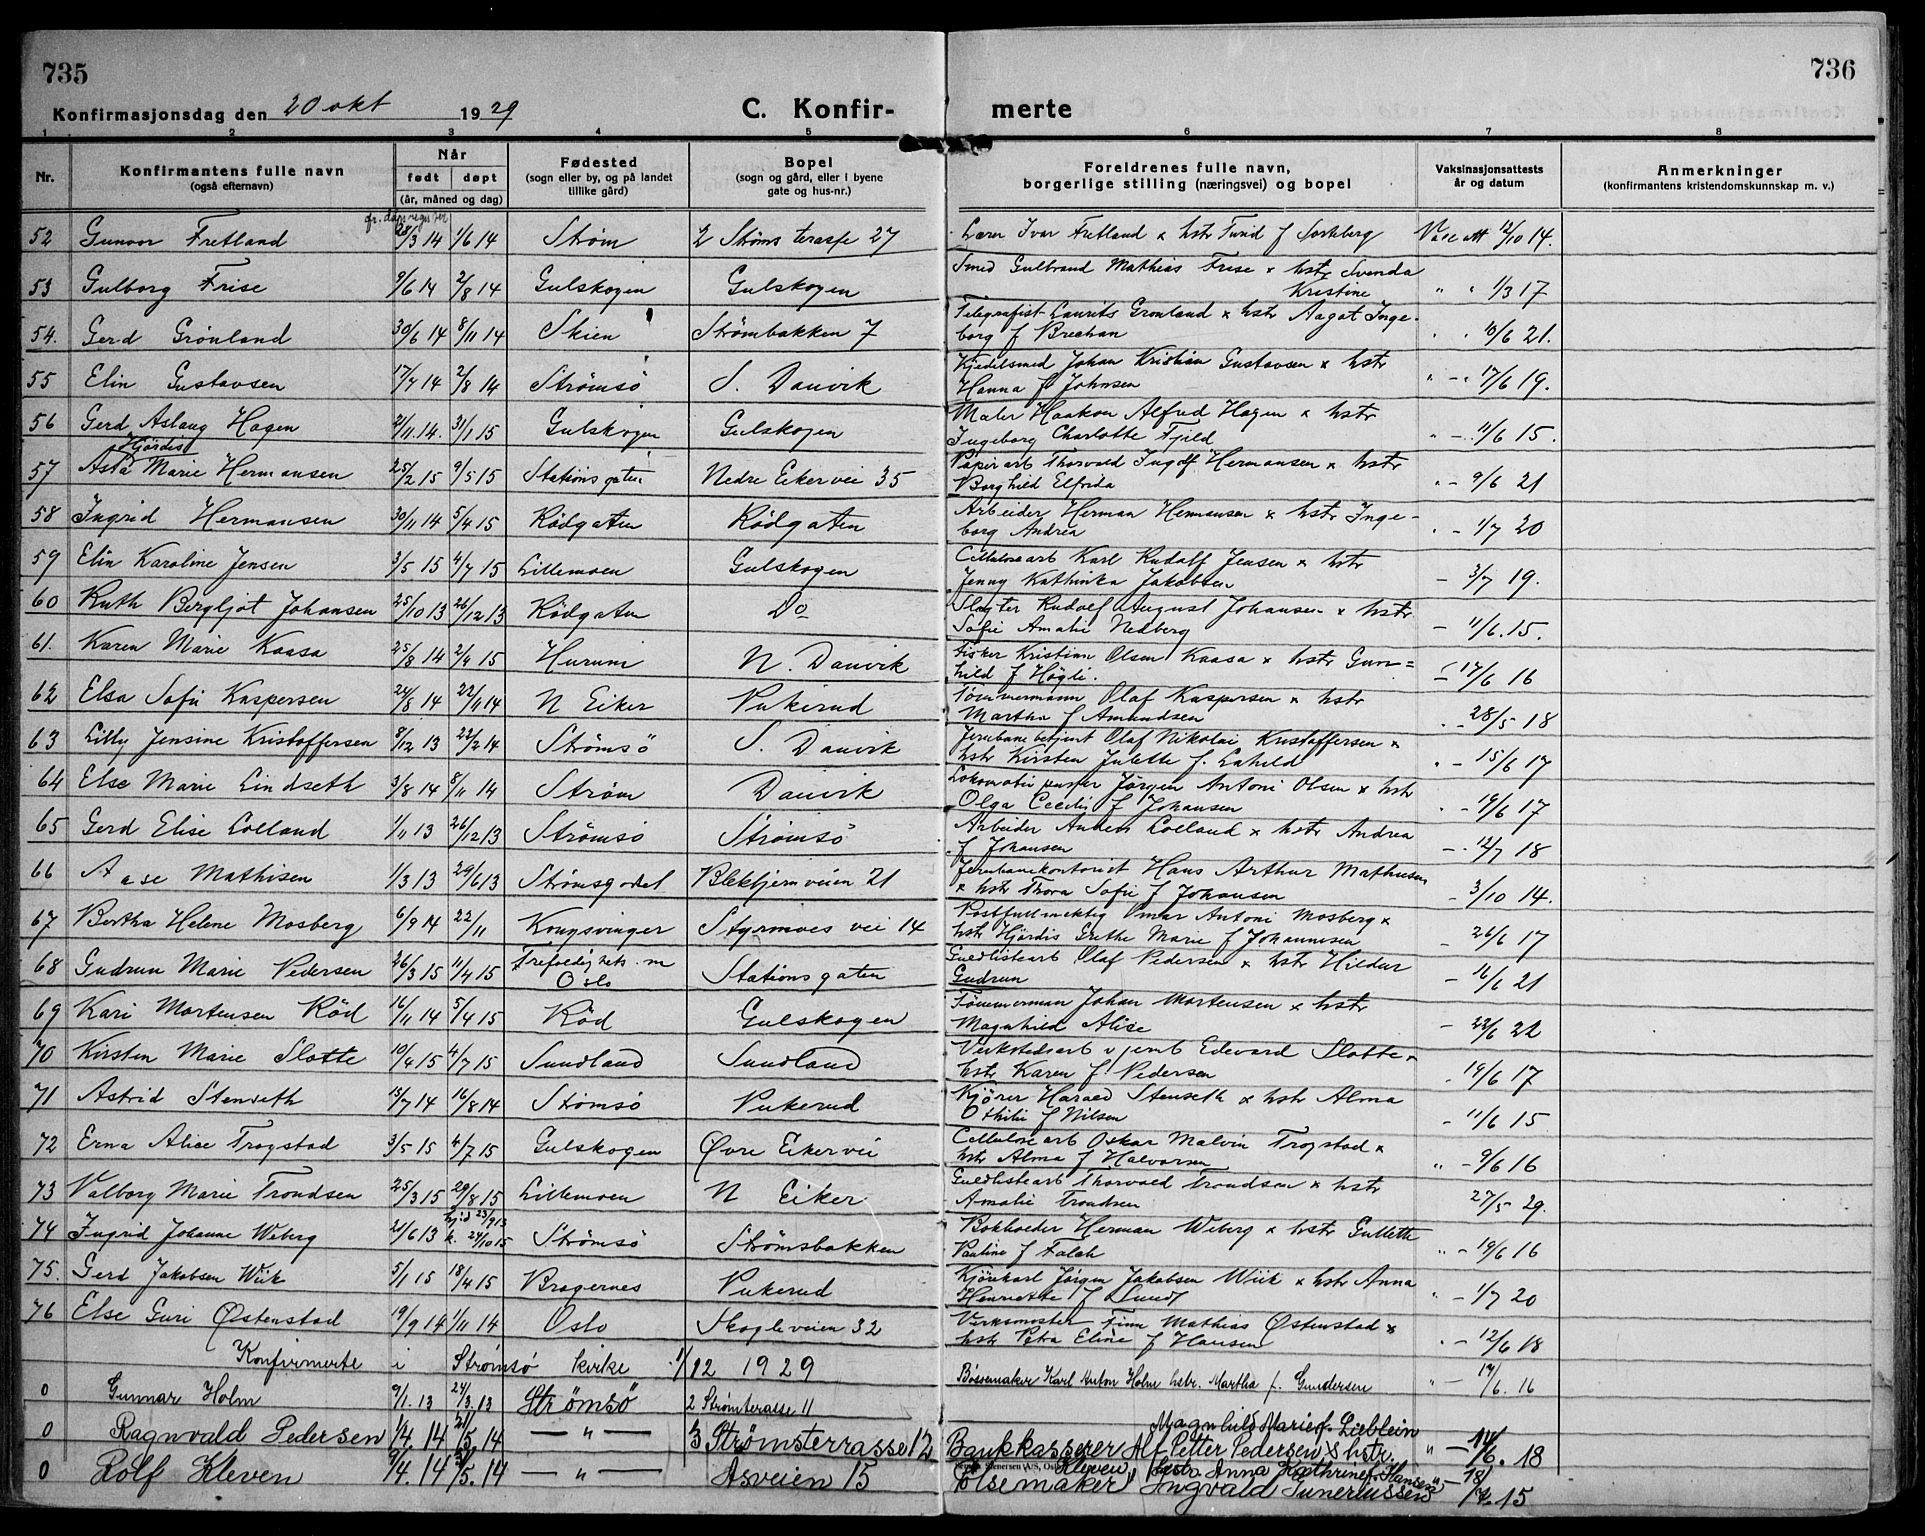 735
736
Konfirmasjonsdag den 20 okt 1929
C. Konfir-
merte
1 2 3 4 5 6 7 8
Nr.
Konfirmantens fulle navn
(også efternavn)
Når
født døpt
(år, måned og dag)
Fødested
(sogn eller by, og på landet
tillike gård)
Bopel
(sogn og gård, eller i byene
gate og hus-nr.)
Foreldrenes fulle navn,
borgerlige stilling (næringsvei) og bopel
Vaksinasjonsattests
år og datum
Anmerkninger
(konfirmantens kristendomskunnskap m. v.)
52 Gunvor Fretland 28/3 14 1/6 14 Strøm 2 Strøms terasse 27 Lærer Ivar Fretland x hstr f Vacc att 12/10 14.
53 Gulborg Frise 9/6 14 2/8 14 Gulskogen Gulskogen Smed Gulbrand Mathias Frise x hstr Svenda
Kristine " " 1/3 17
54. Gerd Grönland 30/6 14 8/11 14 Skien Strømbakken 7 Telegrafist Laurits Grønland x hstr Aagot Inge-
borg f Brechan " " 10/6 21.
55 Elin Gustavsen 17/7 14 2/8 14 Strømsö S. Danvik Kjedelsmed Johan Kristian Gustavsen x hstr
Hanna f Johnsen " - " 17/6 19.
56 Gerd Aslaug Hagen 2/11. 14. 31/1 15 Gulskogen Gulskogen Maler Haakon Alfred Hagen x hstr
Ingeborg Charlotte Fjeld " - 11/6 15.
Hjördis
57 Asta Marie Hermansen 25/2 15 9/5 15 Stationsgaten Nedre Eiker vei 35 Papirarb Thorvald Ingolf Hermansen x hstr
Borghild Elfrida " - 9/6 21
58 Ingrid Hermansen 30/11 14 5/4 15 Rödgaten Rödgaten Arbeider Herman Hermansen x hstr Inge-
borg Andrea - 1/7 20
59 Elin Karoline Jensen 3/5 15 4/7 15 Lillemoen Gulskogen Cellulosearb Karl Rudolf Jensen x hstr
Jenny Kathinka Jakobsen - 3/7 19.
60 Ruth Bergljot Johansen 25/10 13 26/12 13 Rödgaten Do Slagter Rudolf August Johansen x hstr
Sofie Amalie Nedberg - 11/6. 15.
61. Karen Marie Kaasa 25/8 14 2/4 15 Hurum N. Danvik Fisker Kristian Olsen Kaasa x hstr Gun=
hild f Høgli. - 17/6 16
62 Elsa Sofie Kaspersen 24/8 14 22/11 14 N Eiker Pukerud Tömmermann Olaf Kaspersen x hstr
Martha f Amundsen - 28/5 18
63 Lilly Jensine Kristoffersen 8/12 13 22/2 14 Strømsö S. Danvik Jernbanebetjent Olaf Nikolai Kristoffersen x
hstr Kirsten Julette f. " - 15/6 17
64 Else Marie Lindseth 3/8 14 8/11 14 Strøm Danvik Lokomotiv Jørgen Antoni Olsen x hstr
Olga Cecilie f Johansen - 19/6 17
65 Gerd Elise Lolland 1/11 13 26/12 13 Strømsö Strømsö Arbeider Anders Lolland x hstr Andrea
f Johansen - 12/7 18
66 Aase Mathisen 1/3 13 29/6 13 Strømsgodset Blekkjernveien 21 Jernbanekontorist Hans Arthur Mathisen
x hstr Thora Sofie f Johansen - 3/10 14.
67 Bertha Helene Mosberg 6/9 14 22/11 Kongsvinger Styrmoes vei 14 Postfullmektig Omar Antoni Mosberg x
hstr Hjördis Grethe Marie f Johannesen - 26/6 17
68 Gudrun Marie Pedersen 26/3 15 11/4 15 Trefoldighets. m
Oslo Stationsgaten Guldlistearb Olaf Pedersen x hstr Hildur
Gudrun - 16/6 21
69 Kari Mortensen Röd 16/11 14 5/4 15 Röd Gulskogen Tömmerman Johan Mortensen x hstr
Magnhild Alise - 22/6 22
70 Kirsten Marie Slotte 10/4 15 4/7 15 Sundland Sundland Verkstedsarb v jernb Edevard Slotte x
hstr Karen f. Pedersen - 19/6 17
71 Astrid Stenseth 15/7 14 16/8 14 Strømsö Pukerud Kjörer Harald Stenseth x hstr Alma
Othilie f Nilsen - 11/6 15
72 Erna Alice Trogstad 3/5 15 4/7 15 Gulskogen Øvre Eikervei Cellulosearb Oskar Malvin Trogstad x
hstr Alma f Halvorsen " - 9/6 16
73 Valborg Marie Trondsen 25/3 15 29/8 15 Lillemoen N Eiker Guldlistearb Thorvald Trondsen x hstr
Amalie Trondsen 27/5 29.
74 Ingrid Johanne Wiberg 21/6 13 hjd 23/9 13
k. 24/10 15 Strømsö Strømsbakken Bokholder Herman Wiberg x hstr Gullette
Pauline f Falch " - 19/6 16
75. Gerd Jakobsen Wiik 5/1 15 18/4 15 Bragernes Pukerud Kjörekarl Jörgen Jakobsen Wiik x hstr Anna
Henriette f Lund " - 1/7 20
76 Else Guri Østenstad 19/9 14 1/11 14 Oslo Skogleveien 32 Verksmester Finn Mathias Østenstad x
hstr Petra Eline f Hansen " - 12/6 18
Konfirmerte i Strømsø kirke 1/12 1929
0 Gunnar Holm 9/1. 13 24/3. 13 Strömsö 2 Strømterasse 11 Bøssemaker Karl Anton Holm hstr. Martha f. Gundersen " - 14/6. 16
Magnhild Marie f. Lieblein
0 Ragnvald Pedersen 1/4. 14 21/5. 14 — " — 3 Strømsterrasse 12 Bankkasserer Alf Petter Pedersen & hstr. " - 14/6. 18
Kleven, hstr. Anna Kathrine f. Hansen
0 Rolf Kleven 9/4. 14 /5. 14 — " — Åsveien 15 Pølsemaker Ingvald " - 18/7. 15